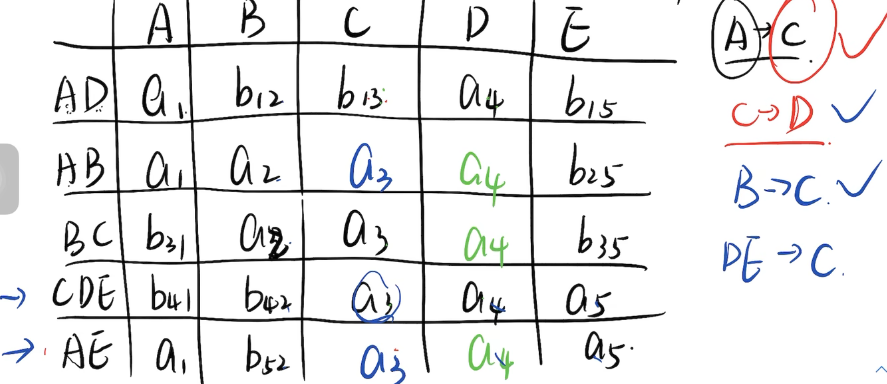 A B C D E
AD a₁ b₁₂ b₁₃ a₄ b₁₅
AB a₁ a₂ a₃ a₄ b₂₅
BC b₃₁ a₂ a₃ a₄ b₃₅
CDE b₄₁ b₄₂ a₃ a₄ a₅
AE a₁ b₅₂ a₃ a₄ a₅
A→C
C→D
B→C
DE→C